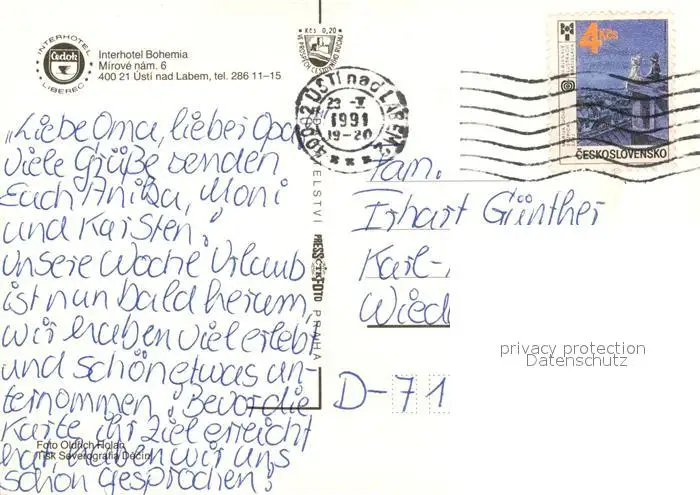 INTERHOTEL
Čedok
LIBEREC
Interhotel Bohemia
Mírové nám. 6
400 21 Ústí nad Labem, tel. 286 11–15
"Liebe Oma, lieber Opa
viele Grüße senden
Euch Anika, Moni
und Karsten."
Unsere Woche Urlaub
ist nun bald herum,
wir haben viel erlebt
und schön etwas un-
ternommen. Bevor die
Karte ihr Ziel erreicht
hat, haben wir uns
schon gesprochen!
Foto Oldřich Holan
Tisk Severografia Děčín
Kčs 0,20
VE PROSPĚCH CESTOVNÍHO RUCHU
ÚSTÍ nad LABEM 2
23.-V.
1991
19-20
PRESSFOTO
PRAHA
4 Kčs
ČESKOSLOVENSKO
Fam.
Irhart Günther
Karl-
Wied
D-71
privacy protection
Datenschutz